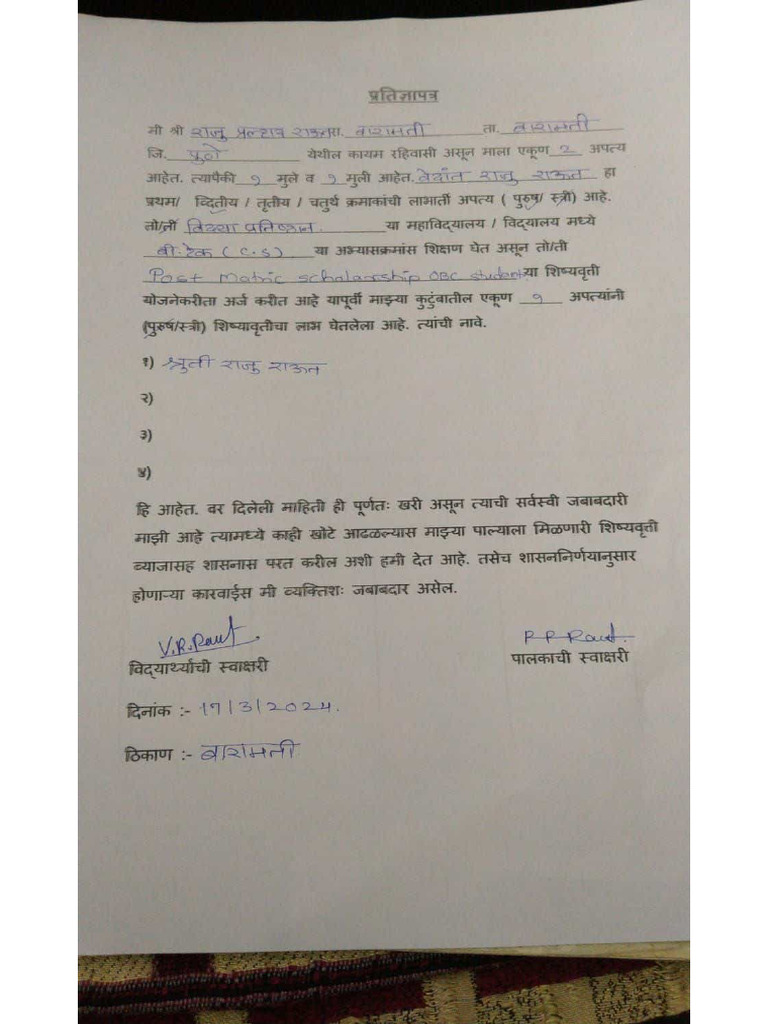 प्रतिज्ञापत्र
मी श्री राजु प्रल्हाद राऊत रा. बारामती ता. बारामती
जि. पुणे येथील कायम रहिवासी असून माला एकूण २ अपत्य
आहेत. त्यापैकी १ मुले व १ मुली आहेत. वेदांत राजु राऊत हा
प्रथम/ व्दितीय / तृतीय / चतुर्थ क्रमाकांची लाभार्ती अपत्य ( पुरुष/ स्त्री) आहे.
तो/ती विद्या प्रतिष्ठान. या महाविद्यालय / विद्यालय मध्ये
बी.टेक ( C.S) या अभ्यासक्रमांस शिक्षण घेत असून तो/ती
Post Matric scholarship OBC student या शिष्यवृती
योजनेकरीता अर्ज करीत आहे यापूर्वी माझ्या कुटुंबातील एकूण १ अपत्यांनी
(पुरुष/स्त्री) शिष्यावृतीचा लाभ घेतलेला आहे. त्यांची नावे.
१) श्रुती राजु राऊत
२)
३)
४)
हि आहेत. वर दिलेली माहिती ही पूर्णतः खरी असून त्याची सर्वस्वी जबाबदारी
माझी आहे त्यामध्ये काही खोटे आढळल्यास माझ्या पाल्याला मिळणारी शिष्यवृत्ती
व्याजासह शासनास परत करील अशी हमी देत आहे. तसेच शासननिर्णयानुसार
होणाऱ्या कारवाईस मी व्यक्तिशः जबाबदार असेल.
V.R.Raut. R P Raut.
विद्यार्थ्याची स्वाक्षरी पालकाची स्वाक्षरी
दिनांक :- 17/3/2024.
ठिकाण :- बारामती